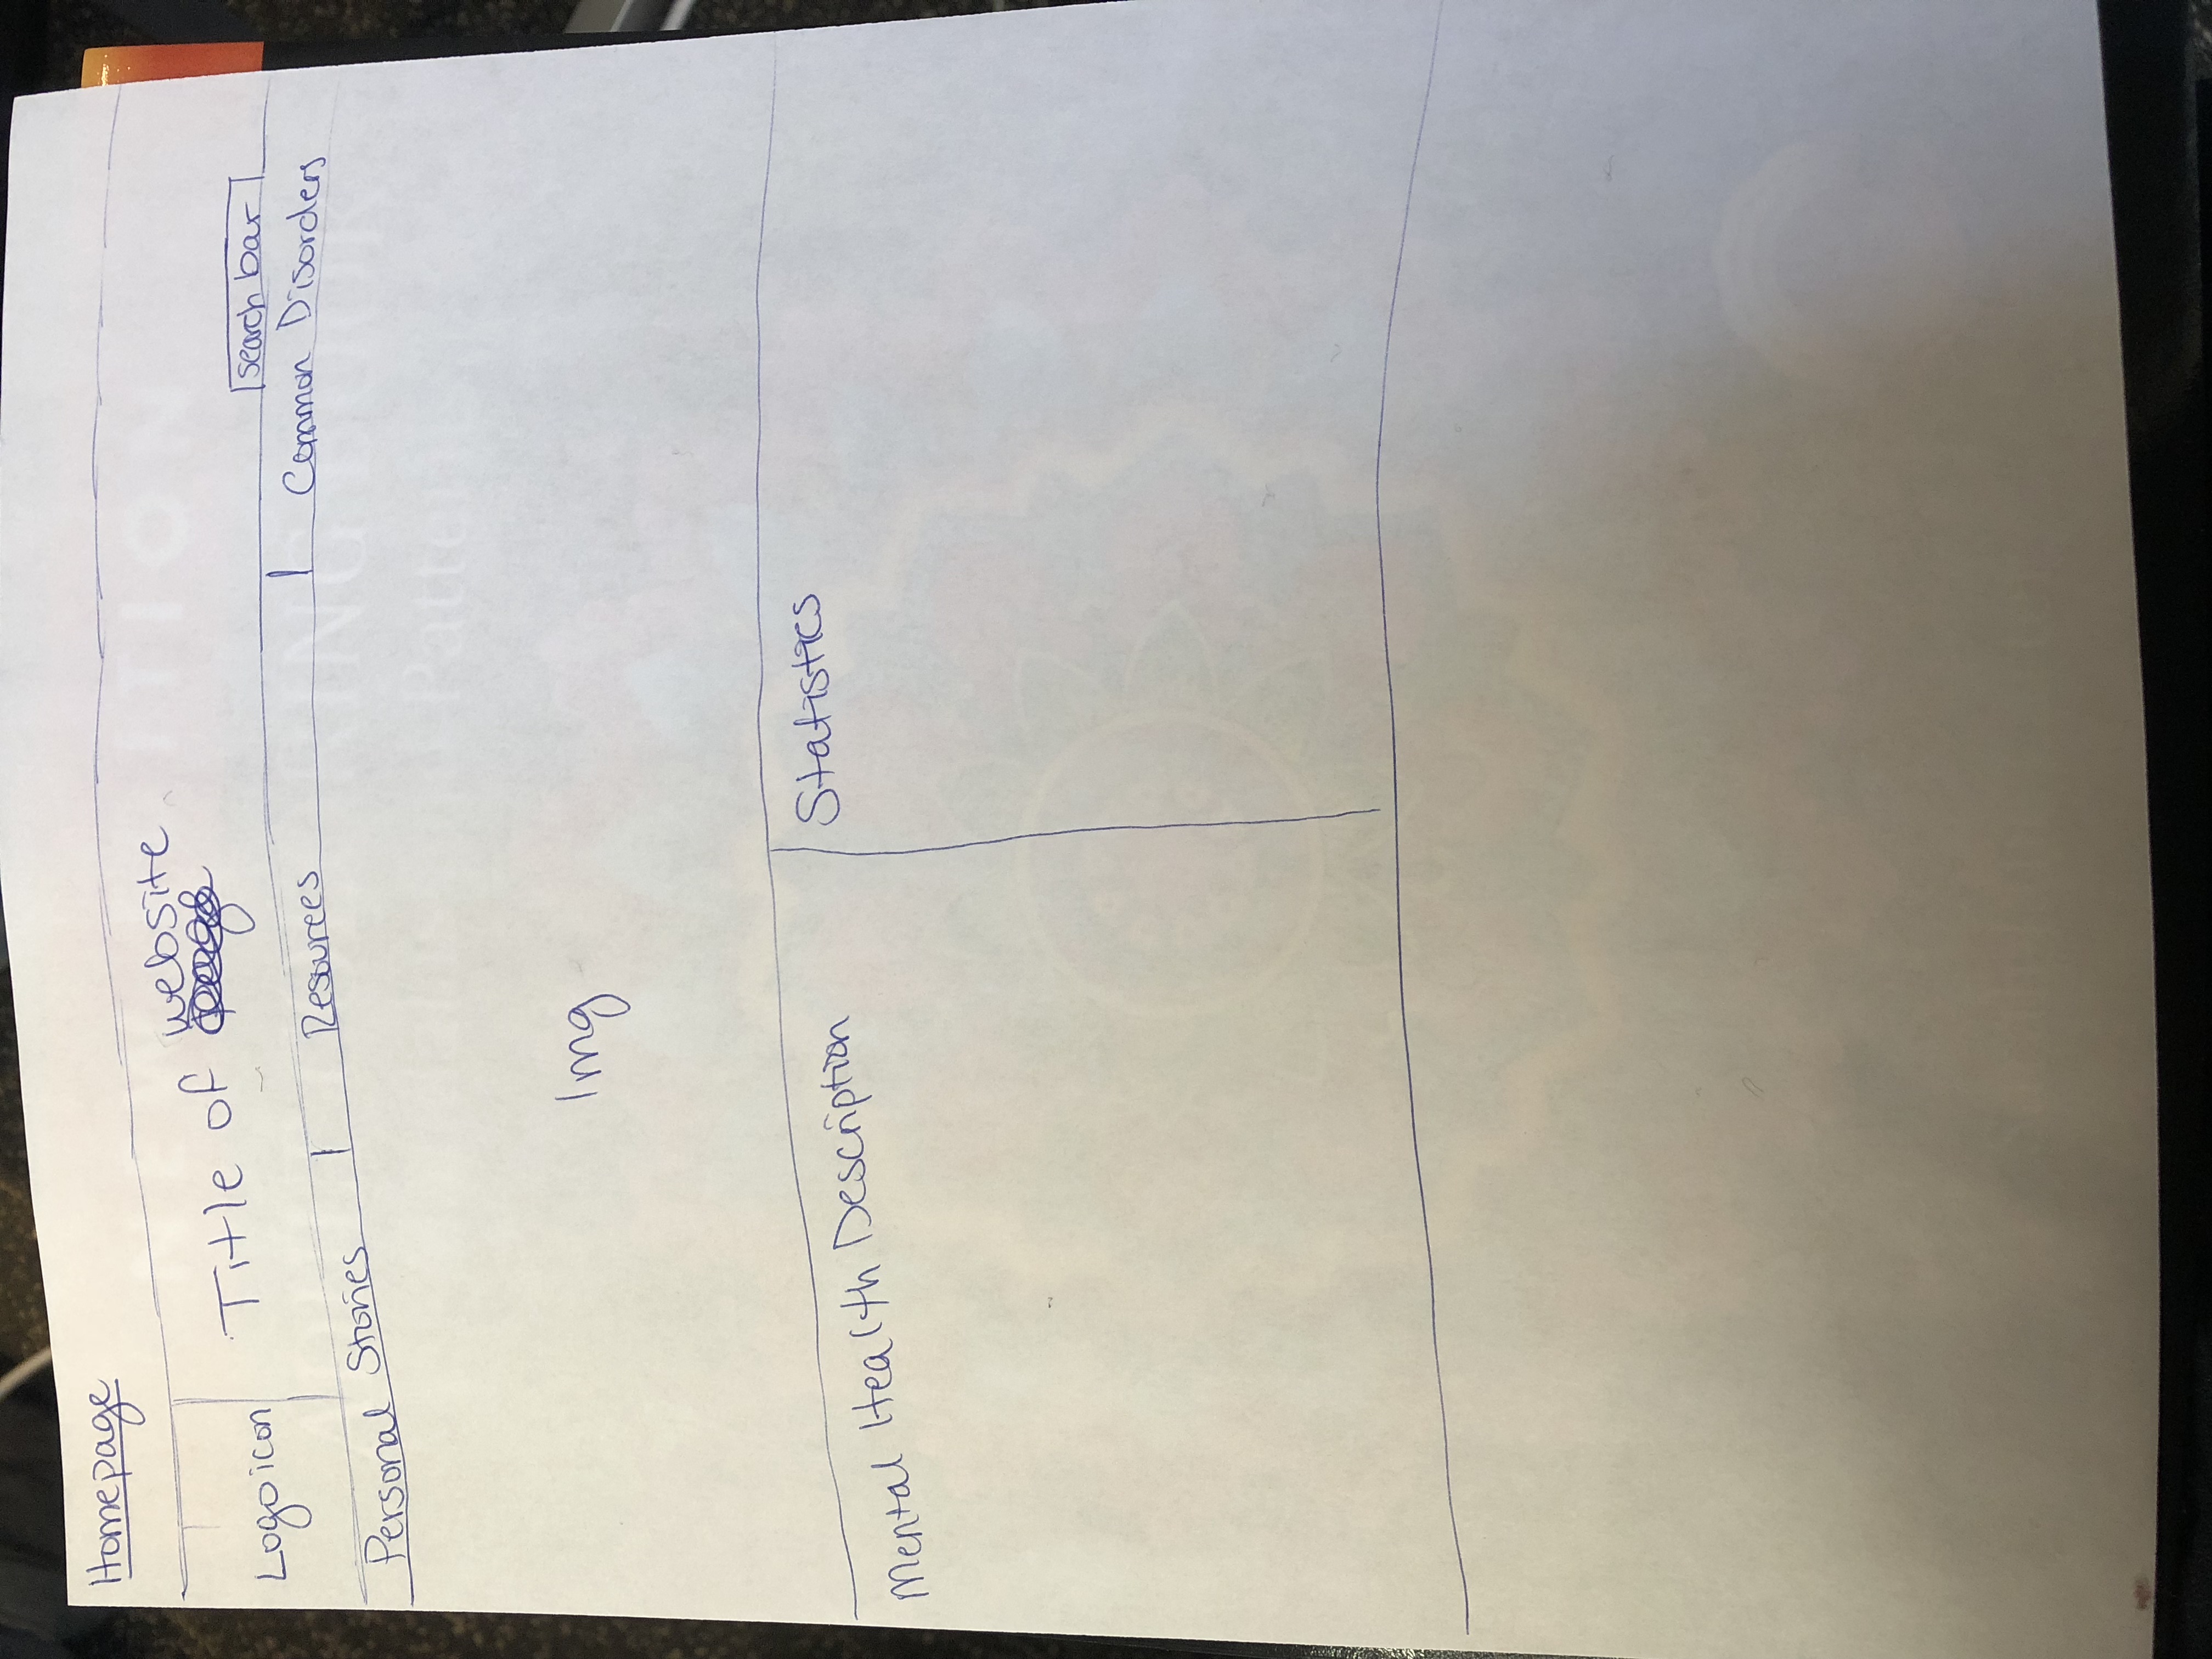 Homepage
website
Title of
Logo icon
search bar
Personal Stories | Resources | Common Disorders
Img
Mental Health Description
Statistics